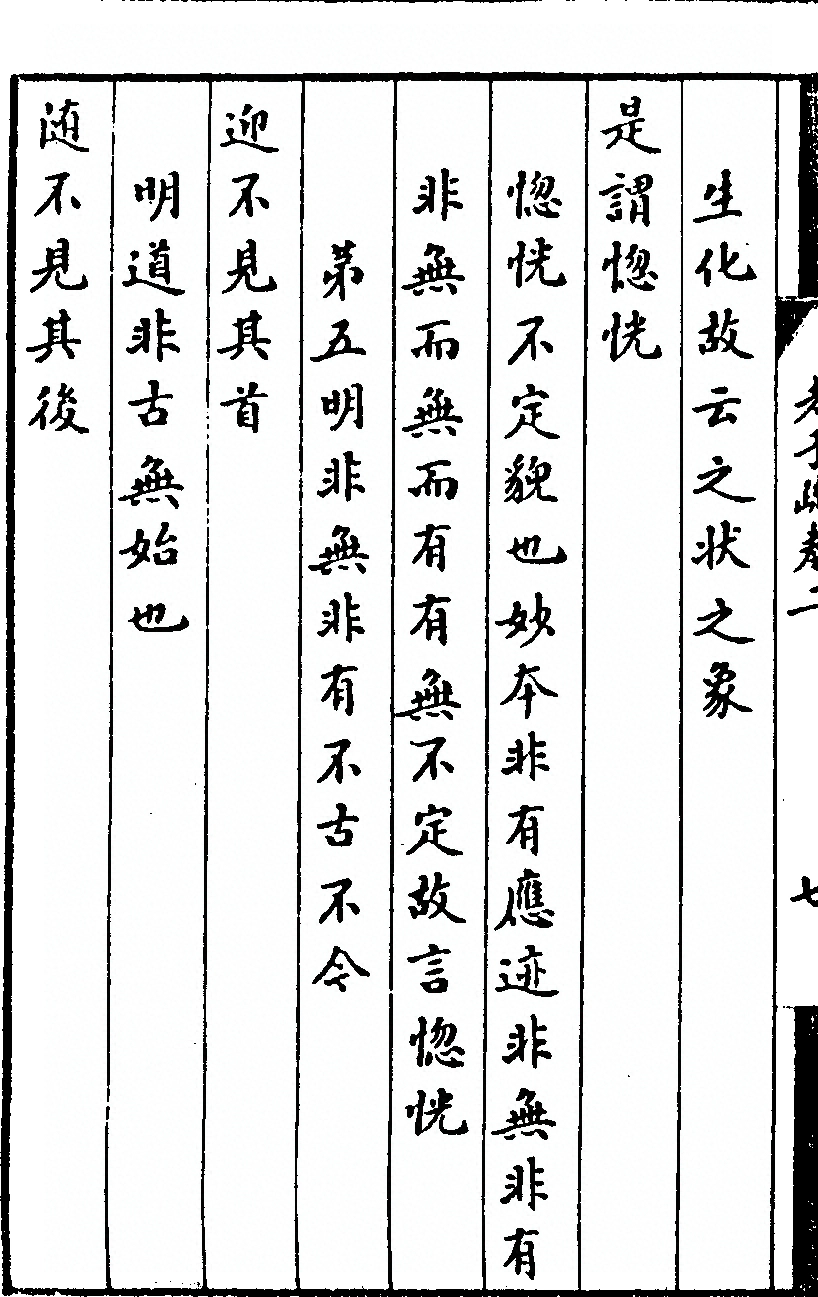 老子疏卷二
七
生化故云之状之象
是謂惚恍
惚恍不定貌也妙夲非有應迹非無非有
非無而無而有有無不定故言惚恍
第五明非無非有不古不今
迎不見其首
明道非古無始也
随不見其後